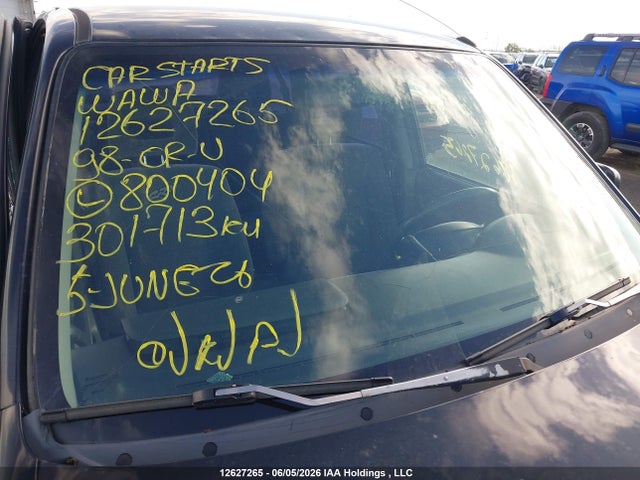 CAR STARTS
WAWA
12627265
98-CR-V
Ⓛ 800404
301713KM
5-JUNE26
12627265 - 06/05/2026 IAA Holdings , LLC